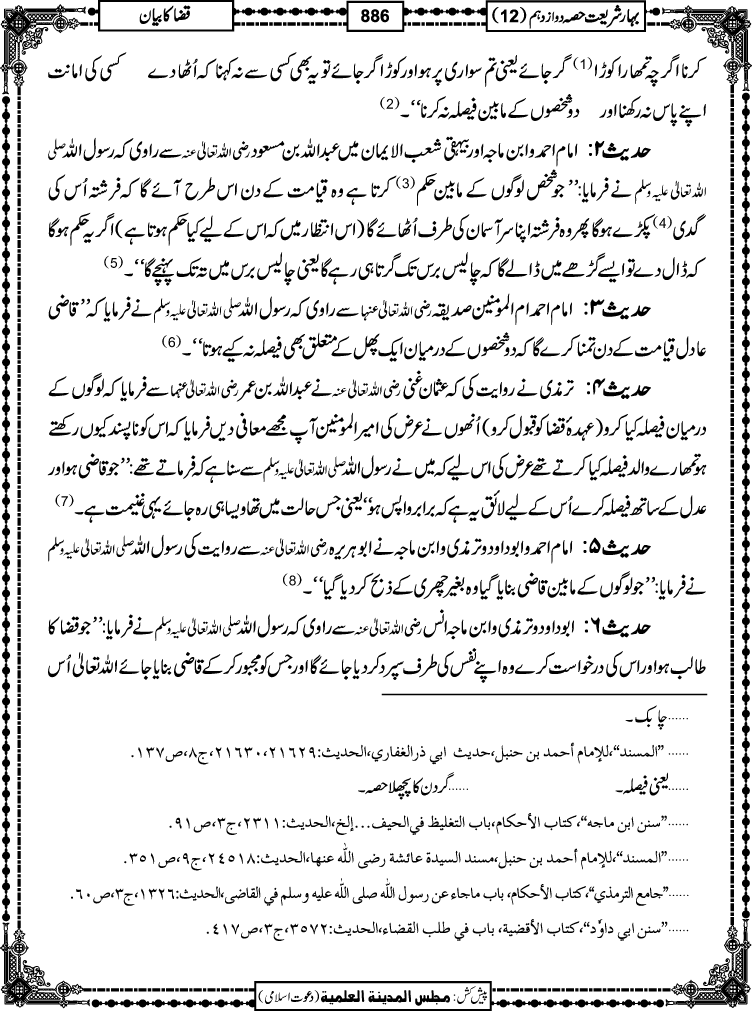 بہارِ شریعت حصہ دوازدہم (12)
886
قضا کا بیان
کرنا اگرچہ تمہارا کوڑا (1) گر جائے یعنی تم سواری پر ہو اور کوڑا گر جائے تو یہ بھی کسی سے نہ کہنا کہ اُٹھا دے کسی کی امانت
اپنے پاس نہ رکھنا اور دو شخصوں کے مابین فیصلہ نہ کرنا‘‘۔ (2)
حدیث ۲: امام احمد و ابن ماجہ اور بیہقی شعب الایمان میں عبد اللہ بن مسعود رضی اللہ تعالیٰ عنہ سے راوی کہ رسول اللہ صلی
اللہ تعالیٰ علیہ وسلم نے فرمایا:’’ جو شخص لوگوں کے مابین حکم (3) کرتا ہے وہ قیامت کے دن اس طرح آئے گا کہ فرشتہ اُس کی
گدی (4) پکڑے ہوگا پھر وہ فرشتہ اپنا سر آسمان کی طرف اُٹھائے گا (اس انتظار میں کہ اس کے لیے کیا حکم ہوتا ہے) اگر یہ حکم ہوگا
کہ ڈال دے تو ایسے گڑھے میں ڈالے گا کہ چالیس برس تک گرتا ہی رہے گا یعنی چالیس برس میں تہ تک پہنچے گا‘‘۔ (5)
حدیث ۳: امام احمد ام المومنین صدیقہ رضی اللہ تعالیٰ عنہا سے راوی کہ رسول اللہ صلی اللہ تعالیٰ علیہ وسلم نے فرمایا کہ ’’ قاضی
عادل قیامت کے دن تمنا کرے گا کہ دو شخصوں کے درمیان ایک پھل کے متعلق بھی فیصلہ نہ کیے ہوتا‘‘۔ (6)
حدیث ۴: ترمذی نے روایت کی کہ عثمان غنی رضی اللہ تعالیٰ عنہ نے عبد اللہ بن عمر رضی اللہ تعالیٰ عنہما سے فرمایا کہ لوگوں کے
درمیان فیصلہ کیا کرو (عہدۂ قضا کو قبول کرو) اُنھوں نے عرض کی امیر المومنین آپ مجھے معافی دیں فرمایا کہ اس کو ناپسند کیوں رکھتے
ہو تمہارے والد فیصلہ کیا کرتے تھے عرض کی اس لیے کہ میں نے رسول اللہ صلی اللہ تعالیٰ علیہ وسلم سے سنا ہے کہ فرماتے تھے:’’ جو قاضی ہو اور
عدل کے ساتھ فیصلہ کرے اُس کے لیے لائق یہ ہے کہ برابر واپس ہو‘‘ یعنی جس حالت میں تھا ویسا ہی رہ جائے یہی غنیمت ہے۔ (7)
حدیث ۵: امام احمد و ابو داود و ترمذی و ابن ماجہ نے ابو ہریرہ رضی اللہ تعالیٰ عنہ سے روایت کی رسول اللہ صلی اللہ تعالیٰ علیہ وسلم
نے فرمایا:’’ جو لوگوں کے مابین قاضی بنایا گیا وہ بغیر چھری کے ذبح کر دیا گیا‘‘۔ (8)
حدیث ۶: ابو داود و ترمذی و ابن ماجہ انس رضی اللہ تعالیٰ عنہ سے راوی کہ رسول اللہ صلی اللہ تعالیٰ علیہ وسلم نے فرمایا:’’ جو قضا کا
طالب ہو اور اس کی درخواست کرے وہ اپنے نفس کی طرف سپرد کر دیا جائے گا اور جس کو مجبور کر کے قاضی بنایا جائے اللہ تعالیٰ اُس
......چابک۔
...... ’’المسند‘‘،للإمام أحمد بن حنبل،حدیث ابی ذرالغفاري،الحدیث:۲۱۶۲۹،۲۱۶۳۰،ج۸،ص۱۳۷.
......یعنی فیصلہ۔ ......گردن کا پچھلا حصہ۔
......’’سنن ابن ماجه‘‘،کتاب الأحکام،باب التغلیظ في الحیف...إلخ،الحدیث:۲۳۱۱،ج۳،ص۹۱.
......’’المسند‘‘،للإمام أحمد بن حنبل،مسند السیدة عائشة رضی الله عنها،الحدیث:۲۴۵۱۸،ج۹،ص۳۵۱.
......’’جامع الترمذي‘‘،کتاب الأحکام، باب ماجاء عن رسول الله صلی الله علیه وسلم في القاضی،الحدیث:۱۳۲۶،ج۳،ص۶۰.
......’’سنن ابي داوٗد‘‘،کتاب الأقضیة، باب في طلب القضاء،الحدیث:۳۵۷۲،ج۳،ص۴۱۷.
پیش کش: مجلس المدینة العلمیة (دعوت اسلامی)